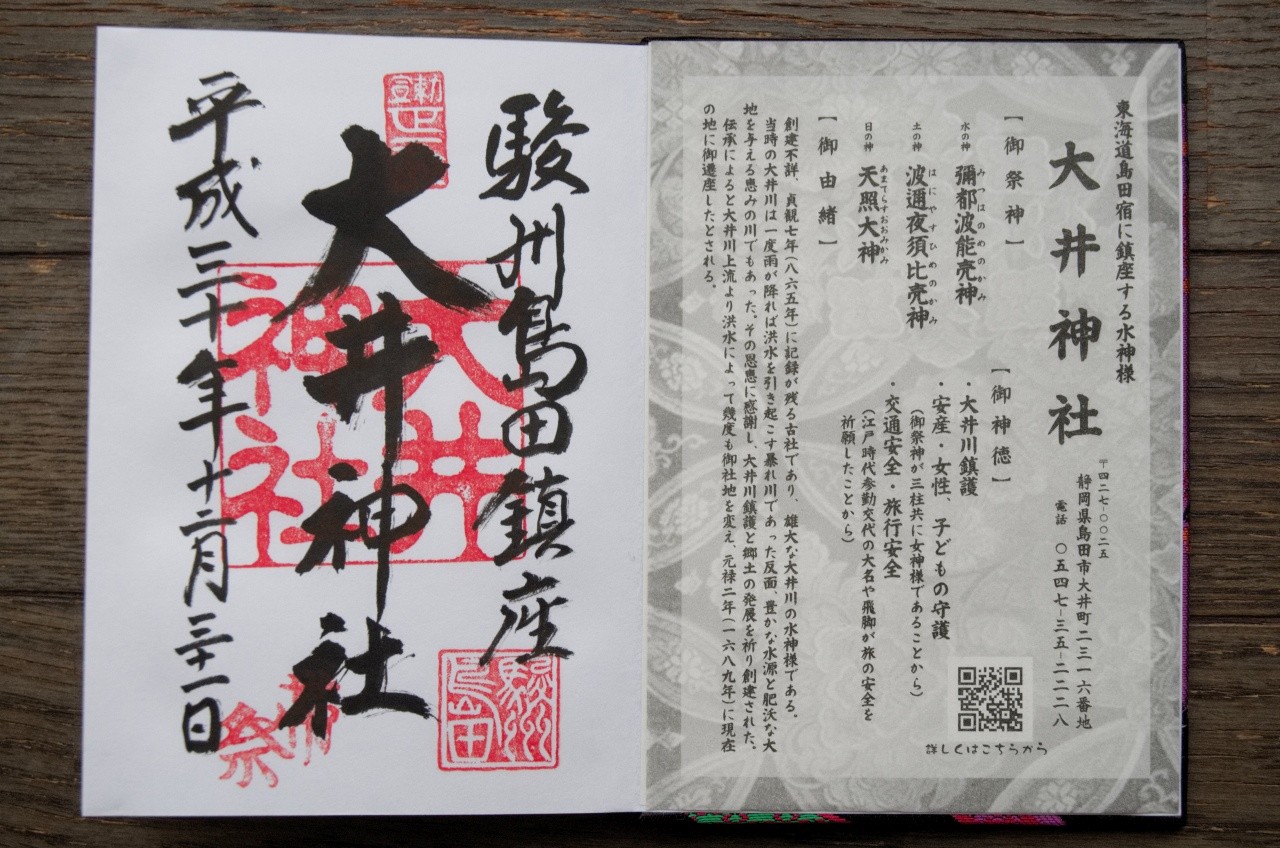 東海道島田宿に鎮座する水神様
大井神社
〒四二七-〇〇二五
静岡県島田市大井町二三一六番地
電話 〇五四七-三五-二二二八
【御祭神】
水の神 彌都波能売神
みつはのめのかみ
土の神 波邇夜須比売神
はにやすひめのかみ
日の神 天照大神
あまてらすおおみかみ
【御神徳】
・大井川鎮護
・安産・女性、子どもの守護
(御祭神が三柱共に女神様であることから)
・交通安全・旅行安全
(江戸時代参勤交代の大名や飛脚が旅の安全を
祈願したことから)
【御由緒】
創建不詳、貞観七年(八六五年)に記録が残る古社であり、雄大な大井川の水神様である。
当時の大井川は一度雨が降れば洪水を引き起こす暴れ川であった反面、豊かな水源と肥沃な大
地を与える恵みの川でもあった。その恩恵に感謝し、大井川鎮護と郷土の発展を祈り創建された。
伝承によると大井川上流より洪水によって幾度も御社地を変え、元禄二年(一六八九年)に現在
の地に御遷座したとされる。
詳しくはこちらから
駿州島田鎮座
駿州島田
大井神社
大井神社
祭
平成三十年十二月三十一日